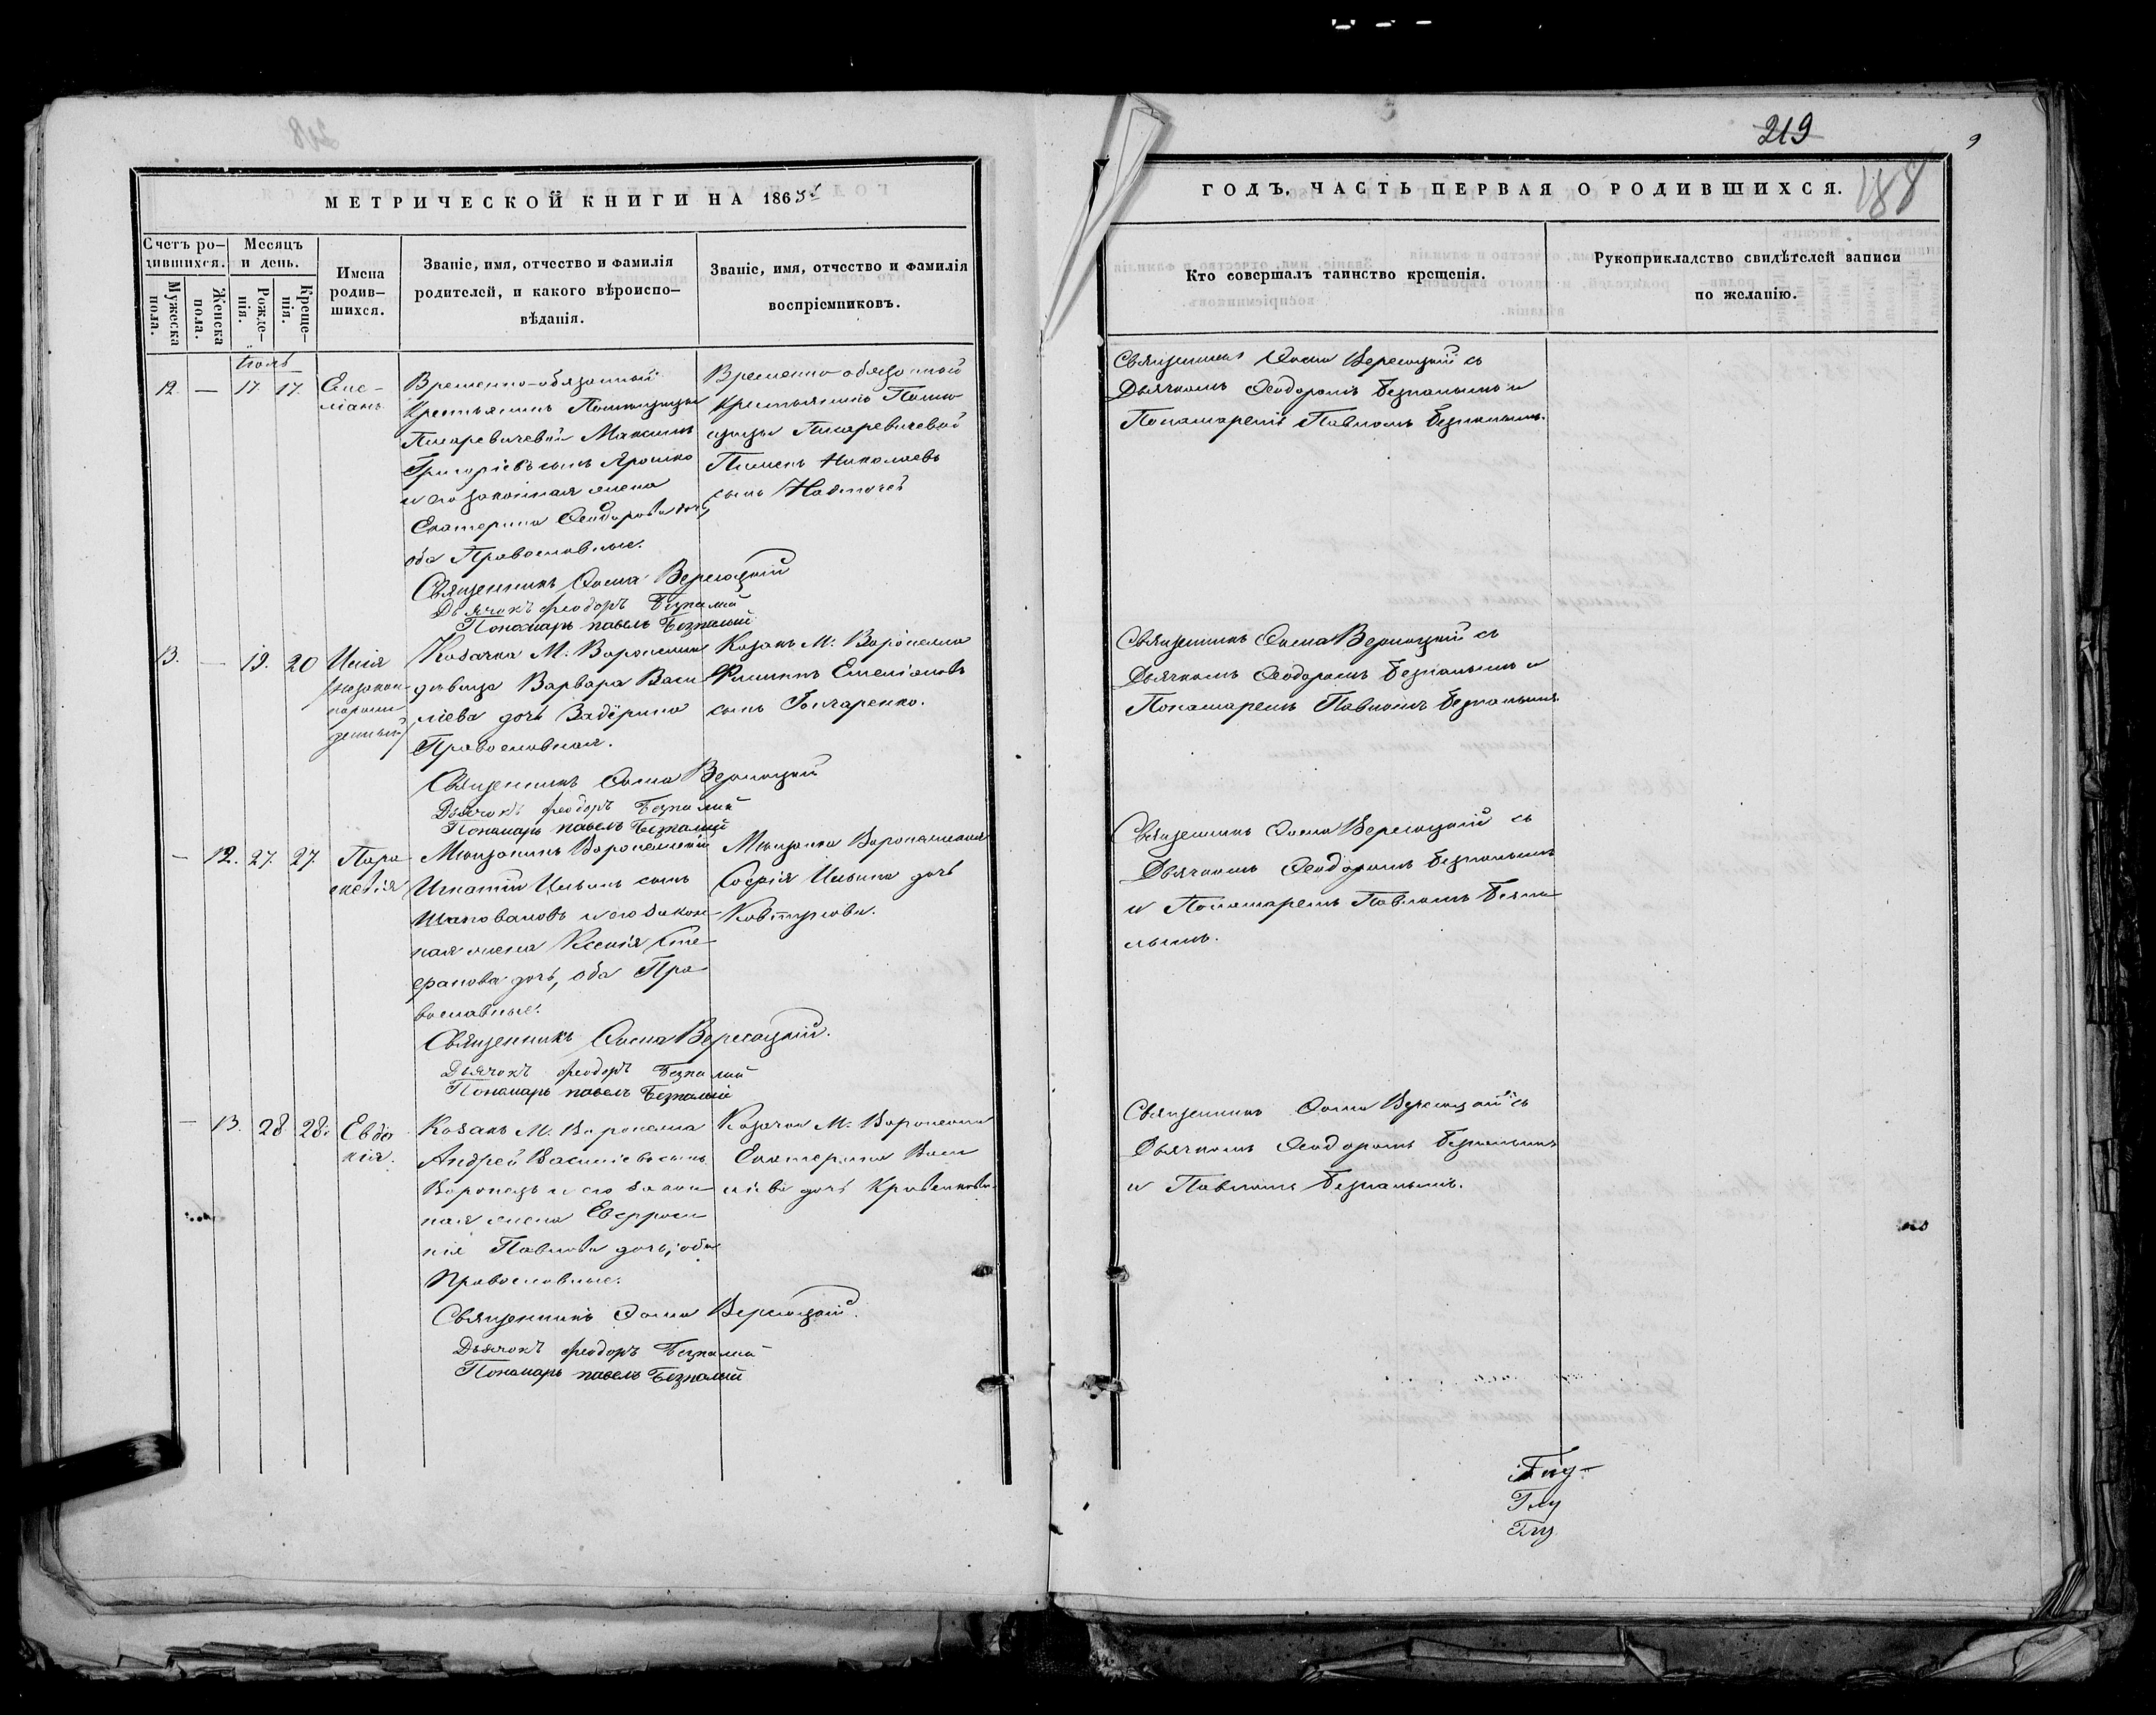 219
9
188
МЕТРИЧЕСКОЙ КНИГИ НА 1863й
ГОДЪ, ЧАСТЬ ПЕРВАЯ О РОДИВШИХСЯ.
Счетъ ро-
дившихся.
Мужеска
пола.
Женска
пола.
Месяцъ
и день.
Рожде-
нія.
Креще-
нія.
Имена
родив-
шихся.
Званіе, имя, отчество и фамилія
родителей, и какого вѣроиспо-
вѣданія.
Званіе, имя, отчество и фамилія
воспріемниковъ.
Кто совершалъ таинство крещенія.
Рукоприкладство свидѣтелей записи
по желанію.
Іюль
12. — 17. 17.
Еме-
ліанъ
Временно-обязанный
Крестьянинъ Помѣщицы
Писаревичевой Максимъ
Григоріевъ сынъ Ярошко
и его законная жена
Екатерина Ѳеодорова дочь,
оба Православные.
Священникъ Ѳома Вересоцкій
Дьячокъ феодоръ Безпалий
Пономарь павелъ Безпалий
Временно-обязанный
Крестьянинъ Помѣ-
щицы Писаревичевой
Пименъ Николаевъ
сынъ
Священникъ Ѳома Вересоцкій съ
Дьячкомъ Ѳеодоромъ Безпалымъ и
Пономаремъ Павломъ Безпалымъ.
13. — 19. 20
Илія
(незакон-
норож-
денный)
Козачка М. Воронежа
девица Варвара Васи-
ліева дочь
Православная.
Священникъ Ѳома Вересоцкій
Дьячокъ феодоръ Безпалий
Пономарь павелъ Безпалий
Козакъ М. Воронежа
Филиппъ Емеліановъ
сынъ Гончаренко.
Священникъ Ѳома Вересоцкій съ
Дьячкомъ Ѳеодоромъ Безпалымъ и
Пономаремъ Павломъ Безпалымъ
— 12. 27. 27.
Пара-
скевія
Мѣщанинъ Воронежскій
Игнатій Ильинъ сынъ
Шаповаловъ и его закон-
ная жена Ксенія Сте-
фанова дочь, оба Пра-
вославные.
Священникъ Ѳома Вересоцкій.
Дьячокъ феодоръ Безпалий
Пономарь павелъ Безпалий
Мѣщанка Воронежская
Софія Ильина дочь
Ковтунова.
Священникъ Ѳома Вересоцкій съ
Дьячкомъ Ѳеодоромъ Безпалымъ
и Пономаремъ Павломъ Безпа-
лымъ.
— 13. 28 28.
Евдо-
кія.
Козакъ М. Воронежа
Андрей Василіевъ сынъ
Воронецъ и его закон-
ная жена Евфроси-
нія Павлова дочь, оба
Православные.
Священникъ Ѳома Вересоцкій.
Дьячокъ феодоръ Безпалий
Пономарь павелъ Безпалий
Козачка М. Воронежа
Екатерина Васи-
ліева дочь
Священникъ Ѳома Вересоцкій съ
Дьячкомъ Ѳеодоромъ Безпалымъ
и Павломъ Безпалымъ.